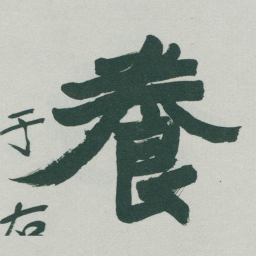 養
于右